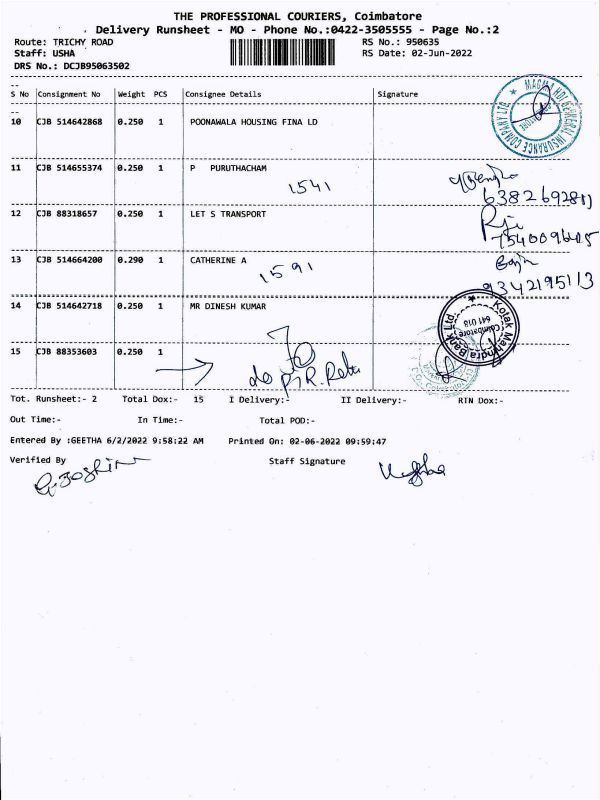 THE PROFESSIONAL COURIERS, Coimbatore
Delivery Runsheet - MO - Phone No.:0422-3505555 - Page No.:2
Route: TRICHY ROAD RS No.: 950635
Staff: USHA RS Date: 02-Jun-2022
DRS No.: DCJB95063502
S No Consignment No Weight PCS Consignee Details Signature
10 CJB 514642868 0.250 1 POONAWALA HOUSING FINA LD
MAGMA HDI GENERAL INSURANCE COMPANY LTD
11 CJB 514655374 0.250 1 P PURUTHACHAM
1541
12 CJB 88318657 0.250 1 LET S TRANSPORT
13 CJB 514664200 0.290 1 CATHERINE A
1591
9342195113
14 CJB 514642718 0.250 1 MR DINESH KUMAR
Kotak Mahindra Bank Ltd.
Coimbatore
641 018
15 CJB 88353603 0.250 1
Tot. Runsheet:- 2 Total Dox:- 15 I Delivery:- II Delivery:- RTN Dox:-
Out Time:- In Time:- Total POD:-
Entered By :GEETHA 6/2/2022 9:58:22 AM Printed On: 02-06-2022 09:59:47
Verified By Staff Signature